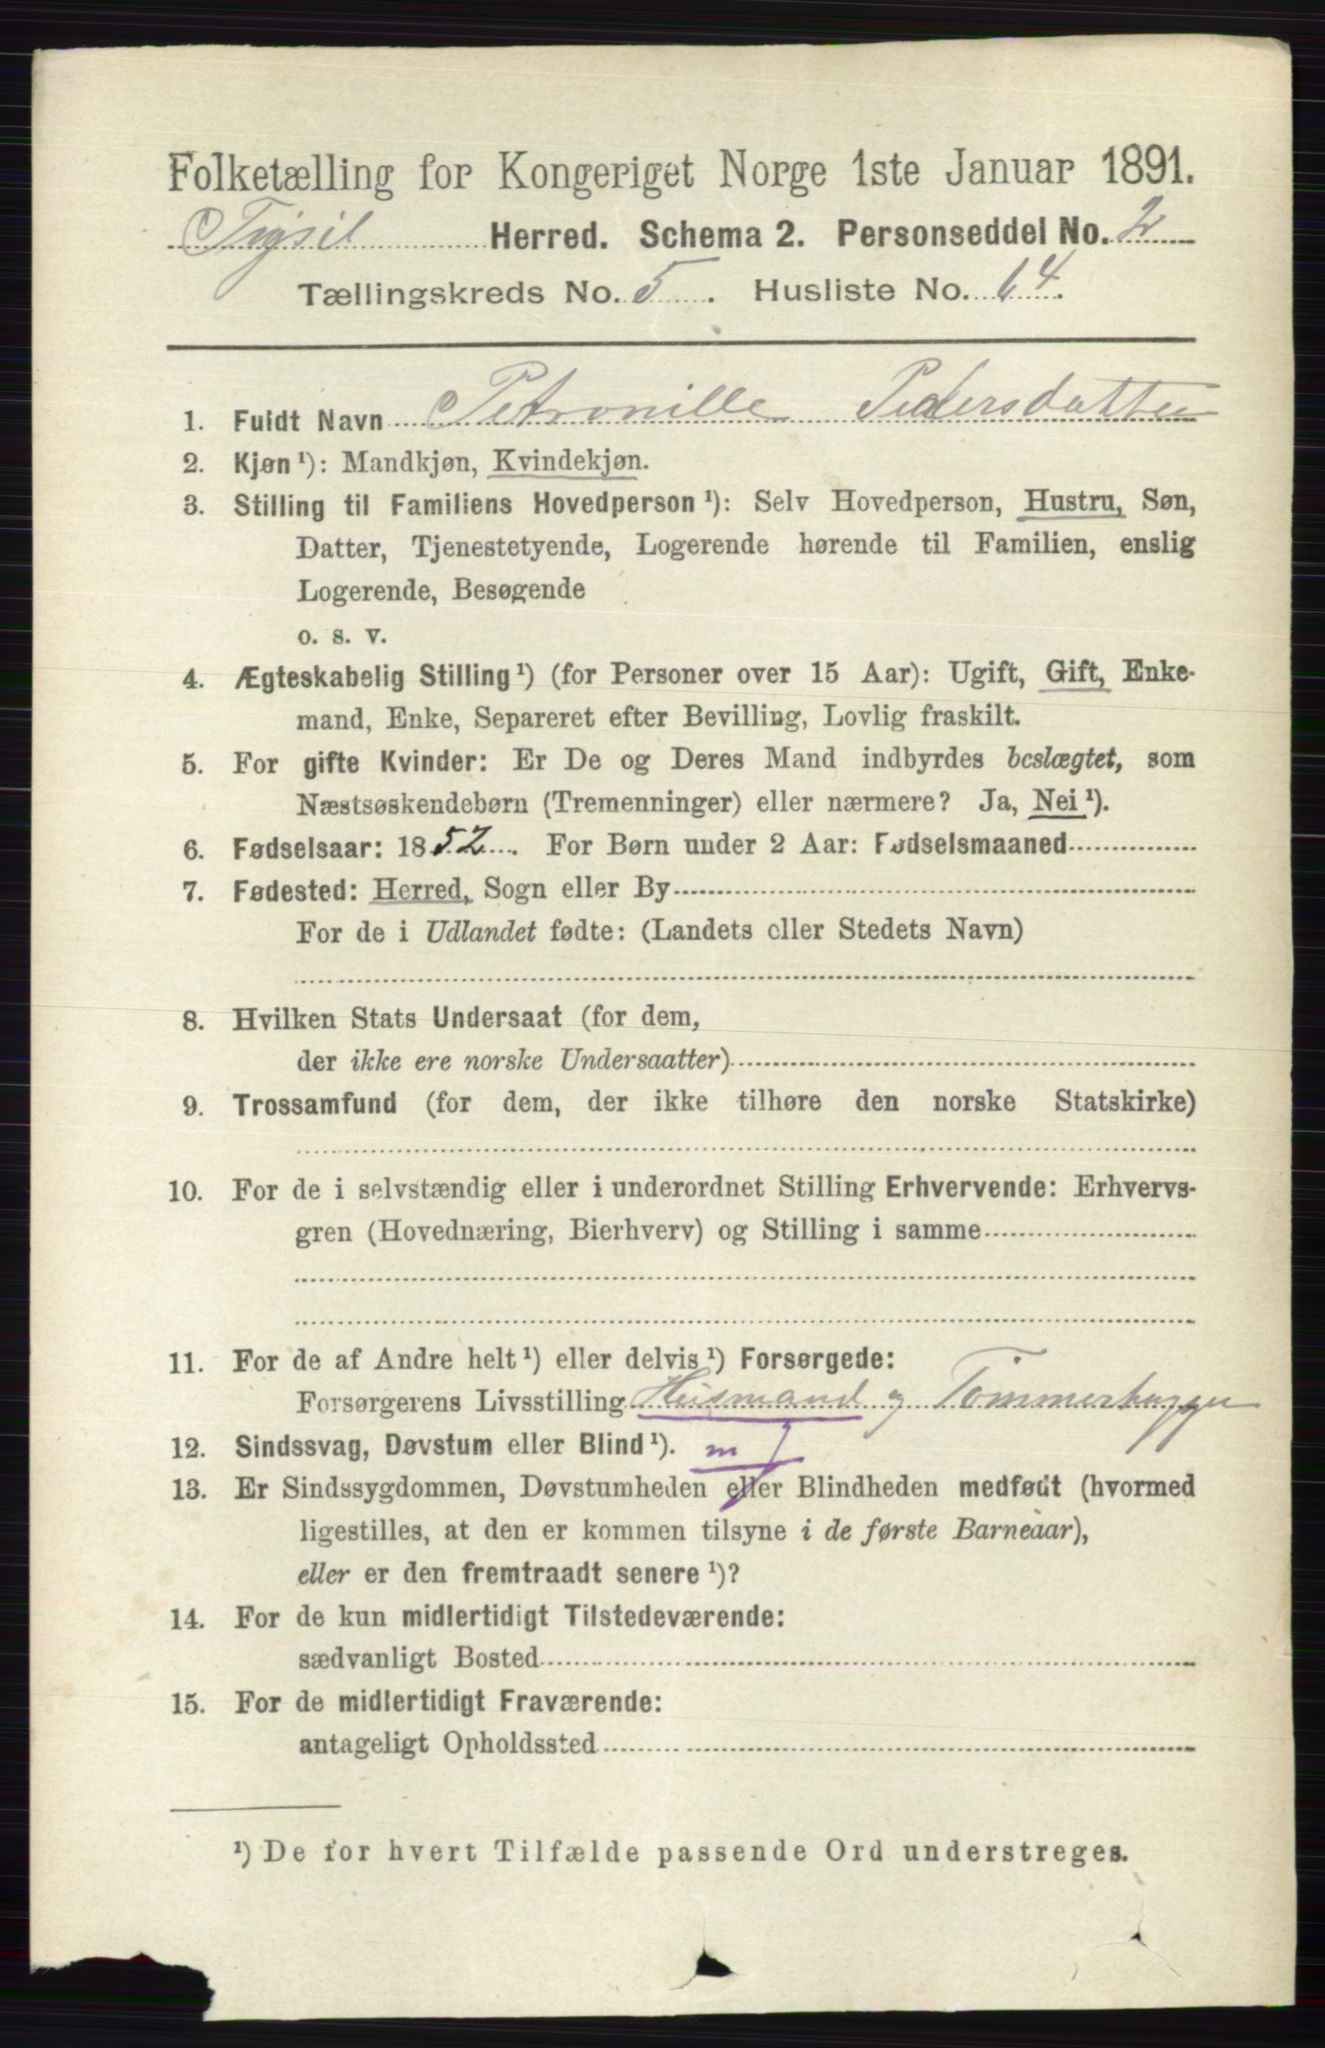 Folketælling for Kongeriget Norge 1ste Januar 1891.
Trysil Herred. Schema 2. Personseddel No. 2
Tællingskreds No. 5. Husliste No. 64.
1. Fuldt Navn Petronille Pedersdatter
2. Kjøn ¹): Mandkjøn, Kvindekjøn.
3. Stilling til Familiens Hovedperson ¹): Selv Hovedperson, Hustru, Søn,
Datter, Tjenestetyende, Logerende hørende til Familien, enslig
Logerende, Besøgende
o. s. v.
4. Ægteskabelig Stilling ¹) (for Personer over 15 Aar): Ugift, Gift, Enke-
mand, Enke, Separeret efter Bevilling, Lovlig fraskilt.
5. For gifte Kvinder: Er De og Deres Mand indbyrdes beslægtet, som
Næstsøskendebørn (Tremenninger) eller nærmere? Ja, Nei ¹).
6. Fødselsaar: 1852. For Børn under 2 Aar: Fødselsmaaned
7. Fødested: Herred, Sogn eller By
For de i Udlandet fødte: (Landets eller Stedets Navn)
8. Hvilken Stats Undersaat (for dem,
der ikke ere norske Undersaatter)
9. Trossamfund (for dem, der ikke tilhøre den norske Statskirke)
10. For de i selvstændig eller i underordnet Stilling Erhvervende: Erhvervs-
gren (Hovednæring, Bierhverv) og Stilling i samme
11. For de af Andre helt ¹) eller delvis ¹) Forsørgede:
Forsørgerens Livsstilling Husmand og Tømmerhugger
12. Sindssvag, Døvstum eller Blind ¹). m
13. Er Sindssygdommen, Døvstumheden eller Blindheden medfødt (hvormed
ligestilles, at den er kommen tilsyne i de første Barneaar),
eller er den fremtraadt senere ¹)?
14. For de kun midlertidigt Tilstedeværende:
sædvanligt Bosted
15. For de midlertidigt Fraværende:
antageligt Opholdssted
¹) De for hvert Tilfælde passende Ord understreges.